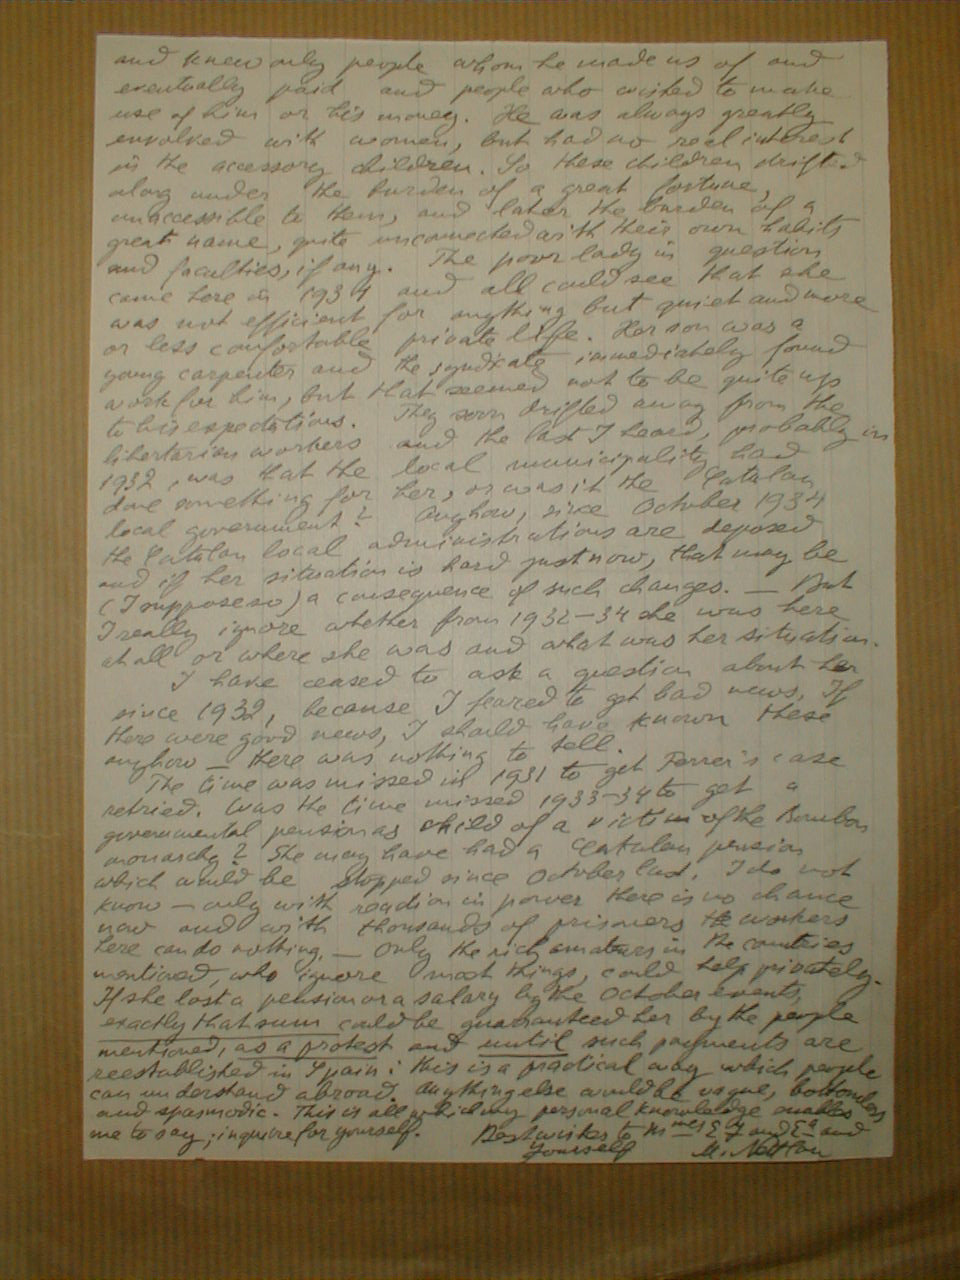 and knew only people whom he made us of and
eventually paid and people who wished to make
use of him or his money. He was always greatly
envolked with women, but had no real interest
in the accessory children. So these children drifted
along under the burden of a great fortune,
unaccessible to them, and later the burden of a
great name, quite unconnected with their own habits
and faculties, if any. The poor lady in question
came here in 1931 and all could see that she
was not efficient for anything but quiet and more
or less comfortable private life. Her son was a
young carpenter and the syndicate immediately found
work for him, but that seemed not to be quite up
to his expectations. They soon drifted away from the
libertarian workers and the last I heard, probably in
1932, was that the local municipality had
done something for her, or was it the Catalan
local government? Anyhow, since October 1934
the Catalan local administrations are deposed
and if her situation is hard just now, that may be
(I suppose so) a consequence of such changes. — But
I really ignore whether from 1932-34 she was here
at all or where she was and what was her situation.
I have ceased to ask a question about her
since 1932, because I feared to get bad news. If
there were good news, I should have known these
anyhow — there was nothing to tell.
The time was missed in 1931 to get Ferrer's case
retried. Was the time missed 1933-34 to get a
governmental pension as child of a victim of the Bourbon
monarchy? She may have had a Catalan pension
which would be stopped since October last. I do not
know — only with reaction in power there is no chance
now and with thousands of prisoners the workers
here can do nothing. — Only the rich amateurs in the countries
mentioned, who ignore most things, could help privately.
If she lost a pension or a salary by the October events,
exactly that sum could be guaranteed her by the people
mentioned, as a protest and until such payments are
reestablished in Spain: this is a practical way which people
can understand abroad. Anything else would be vague, bottomless
and spasmodic. This is all which my personal knowledge enables
me to say; inquire for yourself. Best wishes to Mmes and and
yourself M. Nettlau